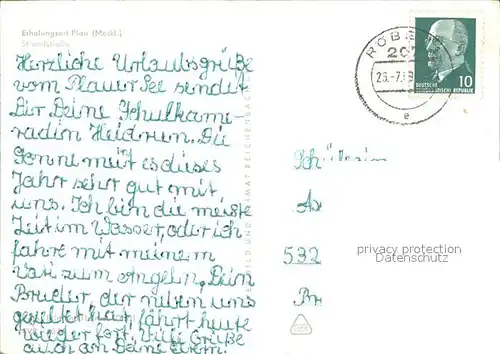 Erholungsort Plau (Meckl.)
Strandstraße
Herzliche Urlaubsgrüße
vom Plauer See sendet
Dir Deine Schulkame-
radin Heidrun. Die
Sonne meint es dieses
Jahr sehr gut mit
uns. Ich bin die meiste
Zeit im Wasser, oder ich
fahre mit meinem
Vati zum Angeln. Dein
Bruder, der neben uns
gezeltet hat, fährt heute
wieder fort. Viele Grüße
auch an Deine Eltern.
RÖB
207
e
DEUTSCHE
DEMOKRATISCHE REPUBLIK
10
Schülerin
532
privacy protection
Datenschutz